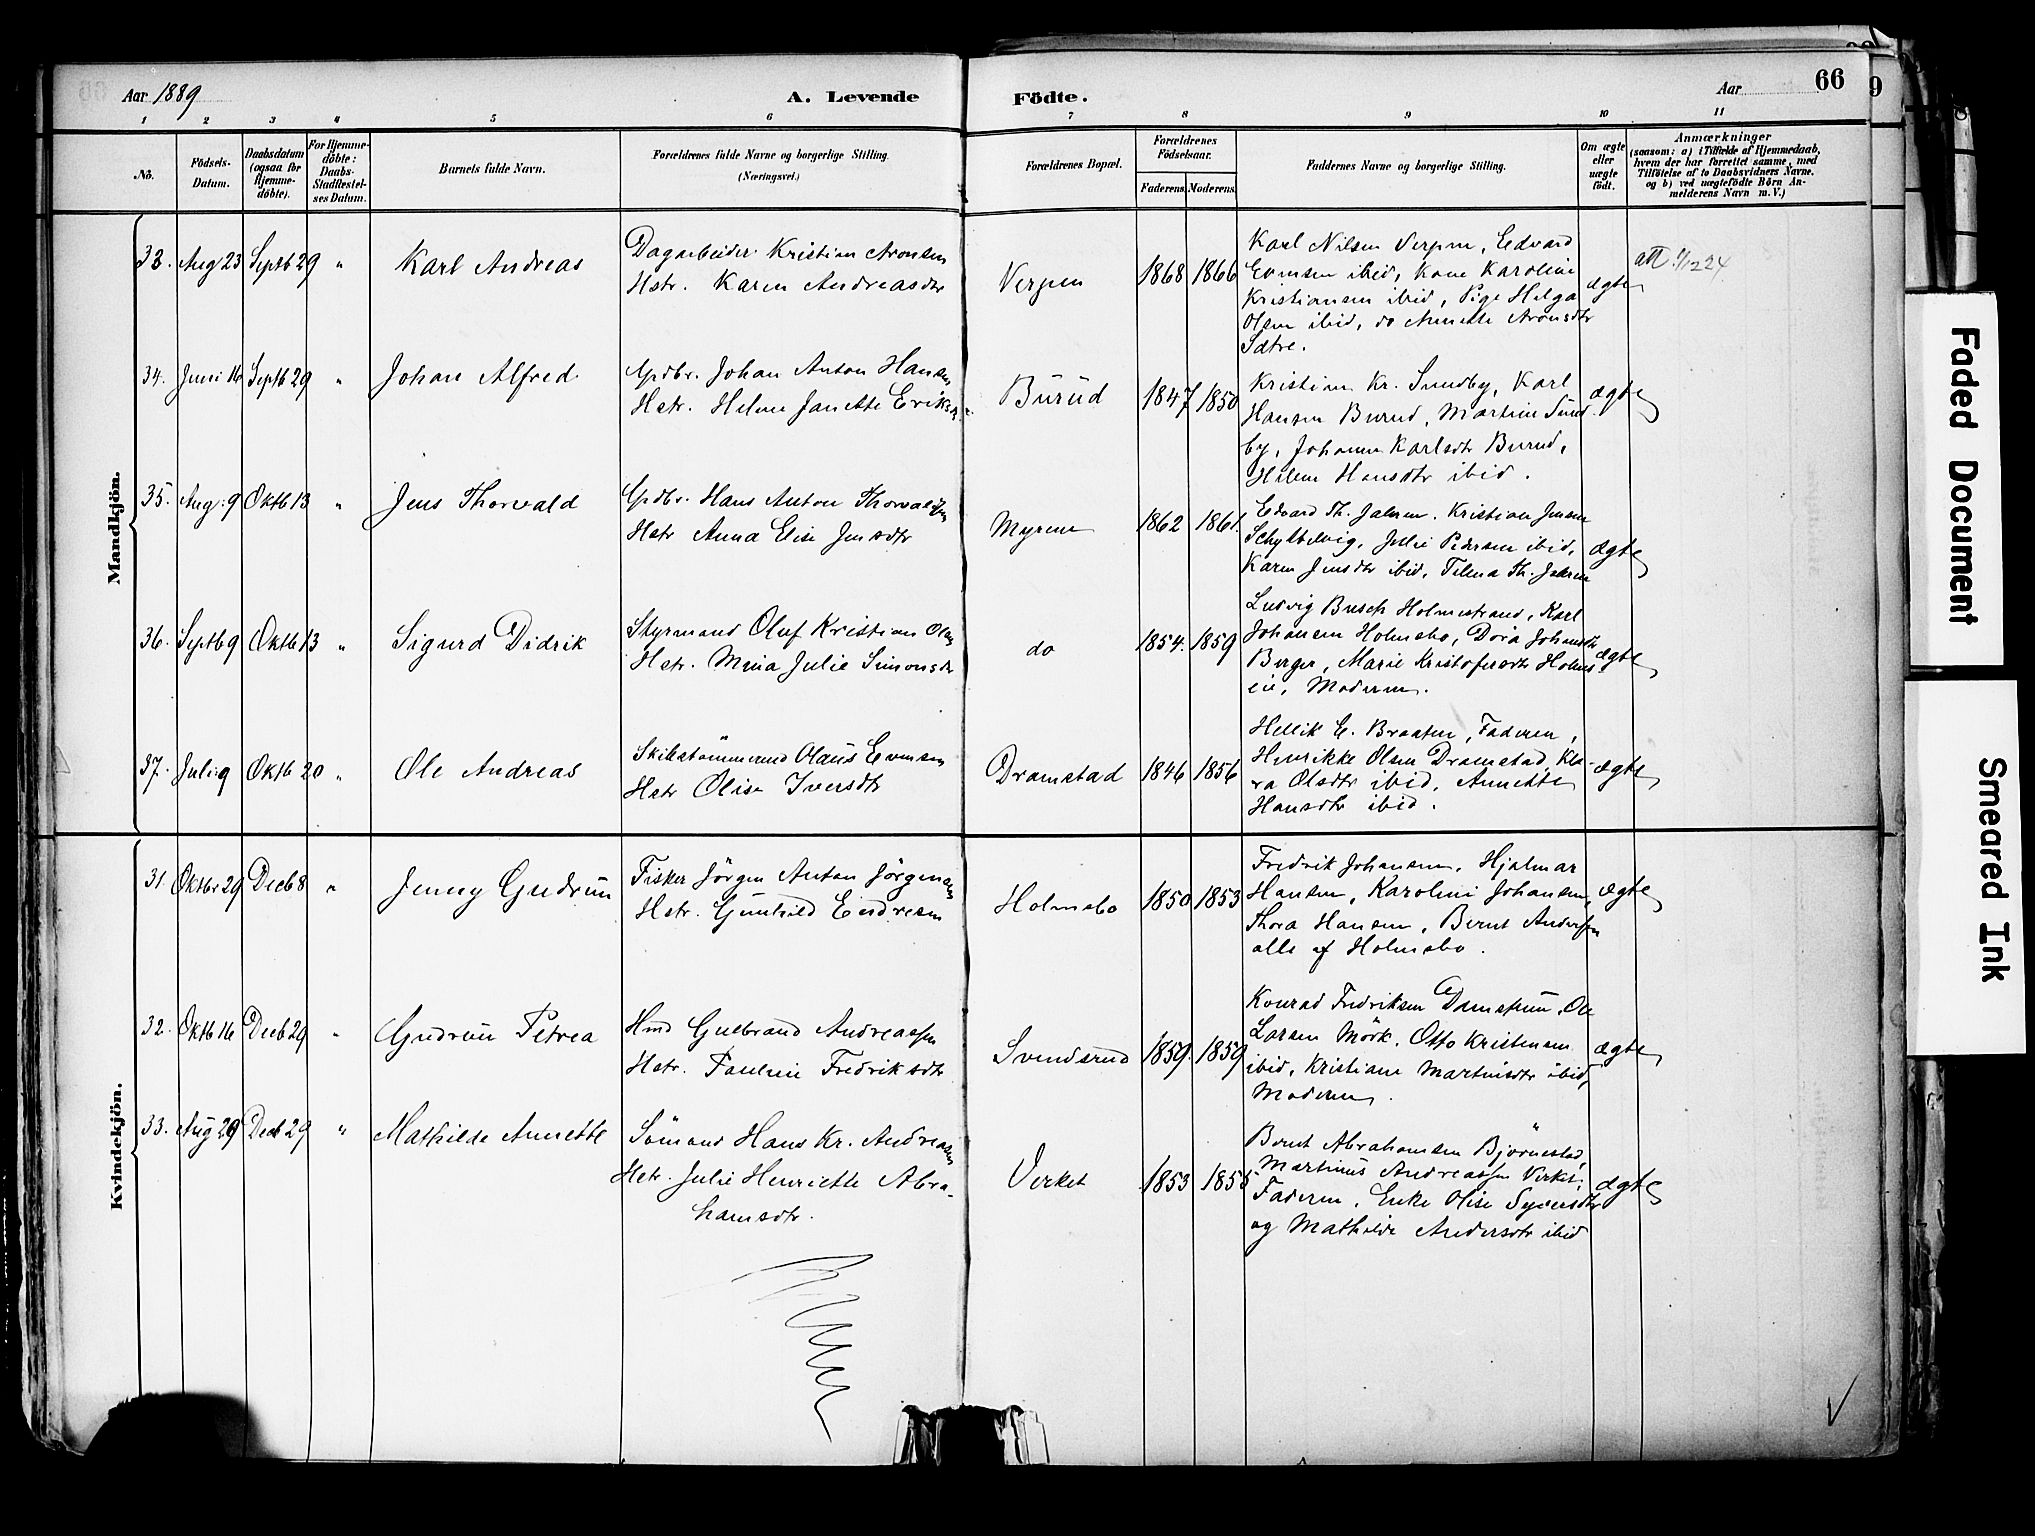 Aar 1889
A. Levende
Födte.
Aar
66
1 2 3 4 5 6 7 8 9 10 11
No.
Födsels-
Datum.
Daabsdatum
(ogsaa for
Hjemme-
döbte).
For Hjemme-
döbte:
Daabs-
Stadfæstel-
ses Datum.
Barnets fulde Navn.
Forældrenes fulde Navne og borgerlige Stilling.
(Næringsvei.)
Forældrenes Bopæl.
Forældrenes
Födselsaar.
Faderens. Moderens.
Faddernes Navne og borgerlige Stilling.
Om ægte
eller
uægte
födt.
Anmærkninger
(saasom: a) i Tilfælde af Hjemmedaab,
hvem der har forrettet samme, med
Tilföielse af to Daabsvidners Navne.
og b) ved uægtefödte Börn An-
melderens Navn m. V.)
Mandkjön.
33. Aug 23 Septb 29 " Karl Andreas
Dagarbeider Kristian Aronsen
Hstr. Karen Andreasdtr
Verpen 1868 1866
Karl Nilsen Verpen, Edvard
Evensen ibid, Kone Karoline
Kristiansen ibid, Pige Helga
Olsen ibid, do Annette Aronsdtr
Sætre.
ægte
att. 1/12 24
34. Juni 16 Septb 29 " Johan Alfred
Grdbr. Johan Anton Hansen
Hstr. Helene Janette Eriksd
Burud 1847 1850
Kristian Kr. Sundby, Karl
Hansen Burud, Martine Sund-
by, Johanne Karlsdtr Burud,
Helene Hansdtr ibid.
ægte
35. Aug. 9 Oktb 13 " Jens Thorvald
Grdbr. Hans Anton Thorvaldsen
Hstr Anna Elise Jensdtr
Myrene 1862 1861.
Edvard Th. Jahren. Kristian Jensen
Schjultsvig, Julie Pedersen ibid,
Karen Jensdtr ibid, Tilma Th. Jahren
ægte
36. Septb 9 Oktb 13 " Sigurd Didrik
Styrmand Oluf Kristian Olsen
Hstr. Mina Julie Simonsdtr
do 1854. 1859
Ludvig Busch Holmestrand, Karl
Johansen Holmsbo, Dora Johansdtr
Berger, Marie Kristofersdtr Holms-
eie, Moderen.
ægte
37. Juli 9 Oktb 20 " Ole Andreas
Skibstömmermd Olaus Evensen
Hstr Olise Iversdtr
Dramstad 1846 1856
Hellik E. Braaten, Faderen,
Henrikke Olsen Dramstad, Kla-
ra Olsdtr ibid, Annette
Hansdtr ibid.
ægte
Kvindekjön.
31. Oktbr 29 Decb 8 " Jenny Gudrun
Fisker Jörgen Anton Jörgensen
Hstr. Gunhild Endresen
Holmsbo 1850 1853
Fredrik Johansen, Hjalmar
Hansen, Karoline Johansen,
Thora Hansen, Bernt Andersen
alle af Holmsbo.
ægte
32. Oktb 16 Decb 29 " Gudrun Petrea
Hmd Gulbrand Andreassen
Hstr. Pauline Fredriksdtr
Svendsrud 1859. 1859
Konrad Fredriksen Damstuen, Ole
Larsen Mörk, Otto Kristensen
ibid, Kristiane Martinsdtr ibid,
Moderen.
ægte
33. Aug 29 Decb 29 " Mathilde Annette
Sömand Hans Kr. Andreasen
Hstr. Julie Henriette Abra-
hamsdtr.
Virket 1853 1855
Bernt Abrahamsen Björnestad,
Martinus Andreassen Virket,
Faderen, Enke Olise Syversdtr
og Mathilde Andersdtr ibid
ægte
Faded Document
Smeared Ink